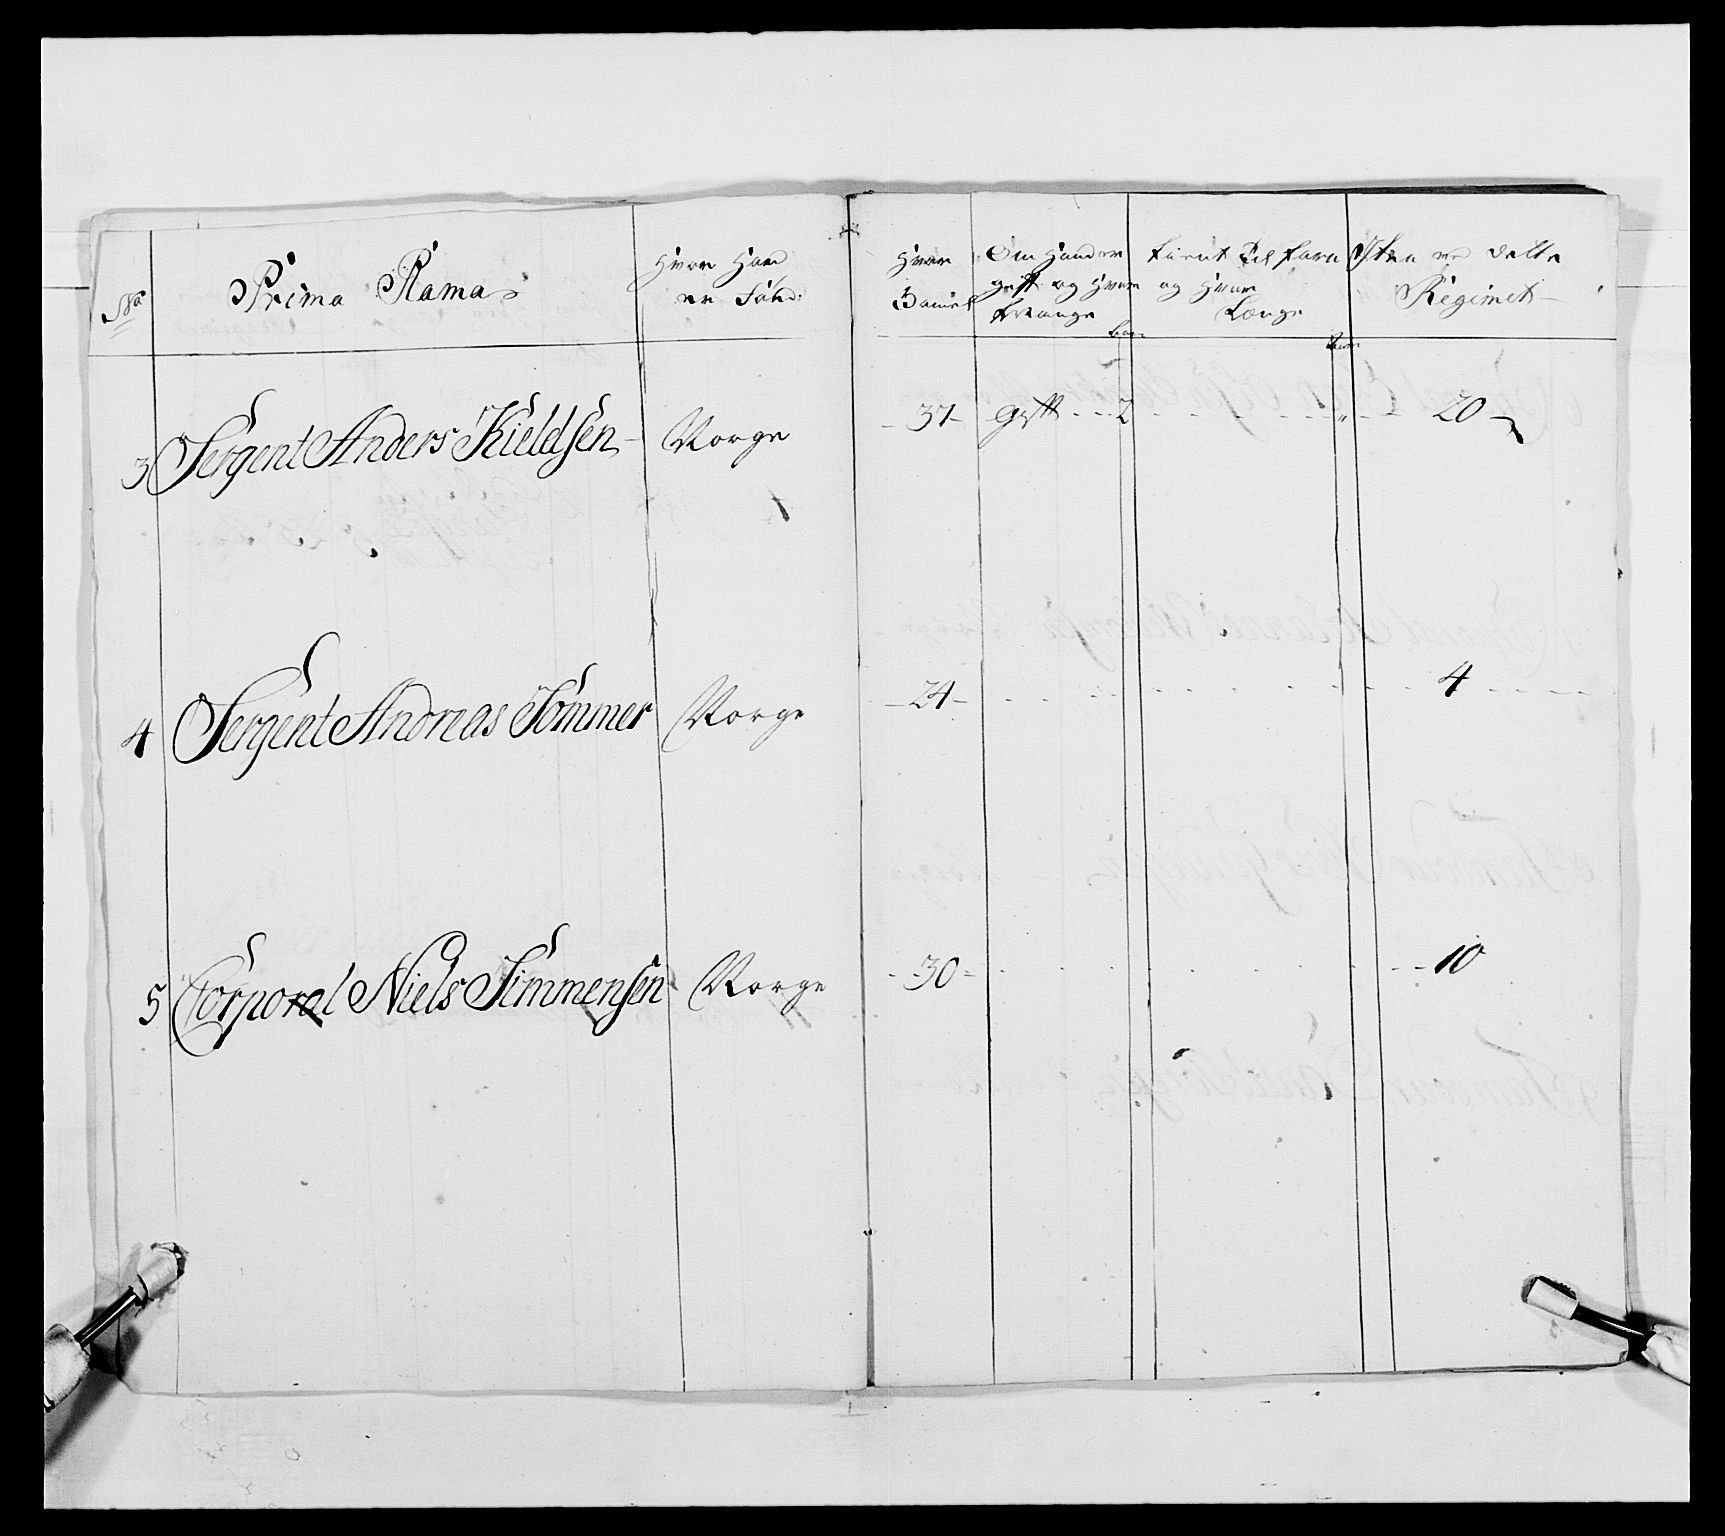 No Prima Plama Hvor Hand er Född Hvor Gamel Om Hand er gift og Hvor mange börn tient Til forn og Hvor Længe Ved dette Regimet
3 Sergent Anders Kieldsen Norge 37 gift 2 " 20
4 Sergent Andreas Tömmer Norge 24 4
5 Corporal Niels Simmensen Norge 30 10